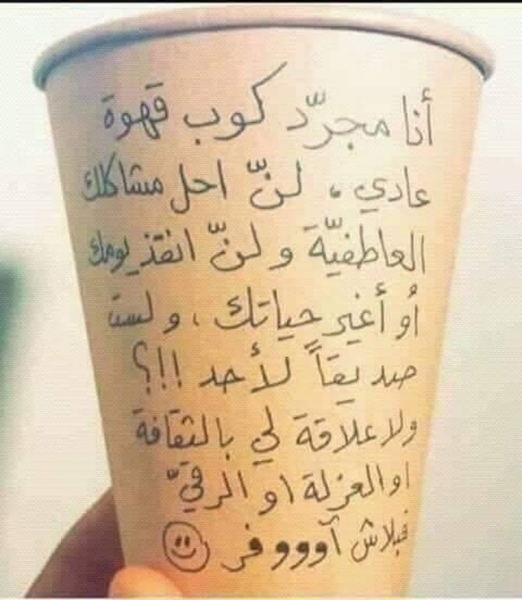 أنا مجرّد كوب قهوة
عادي، لنّ احل مشاكلك
العاطفيّة و لنّ انقذ يومك
أو أغير حياتك، و لست
صديقاً لأحد !!!؟
ولا علاقة لي بالثقافة
او العزلة او الرقيّ
فبلاش آوووفر ☺